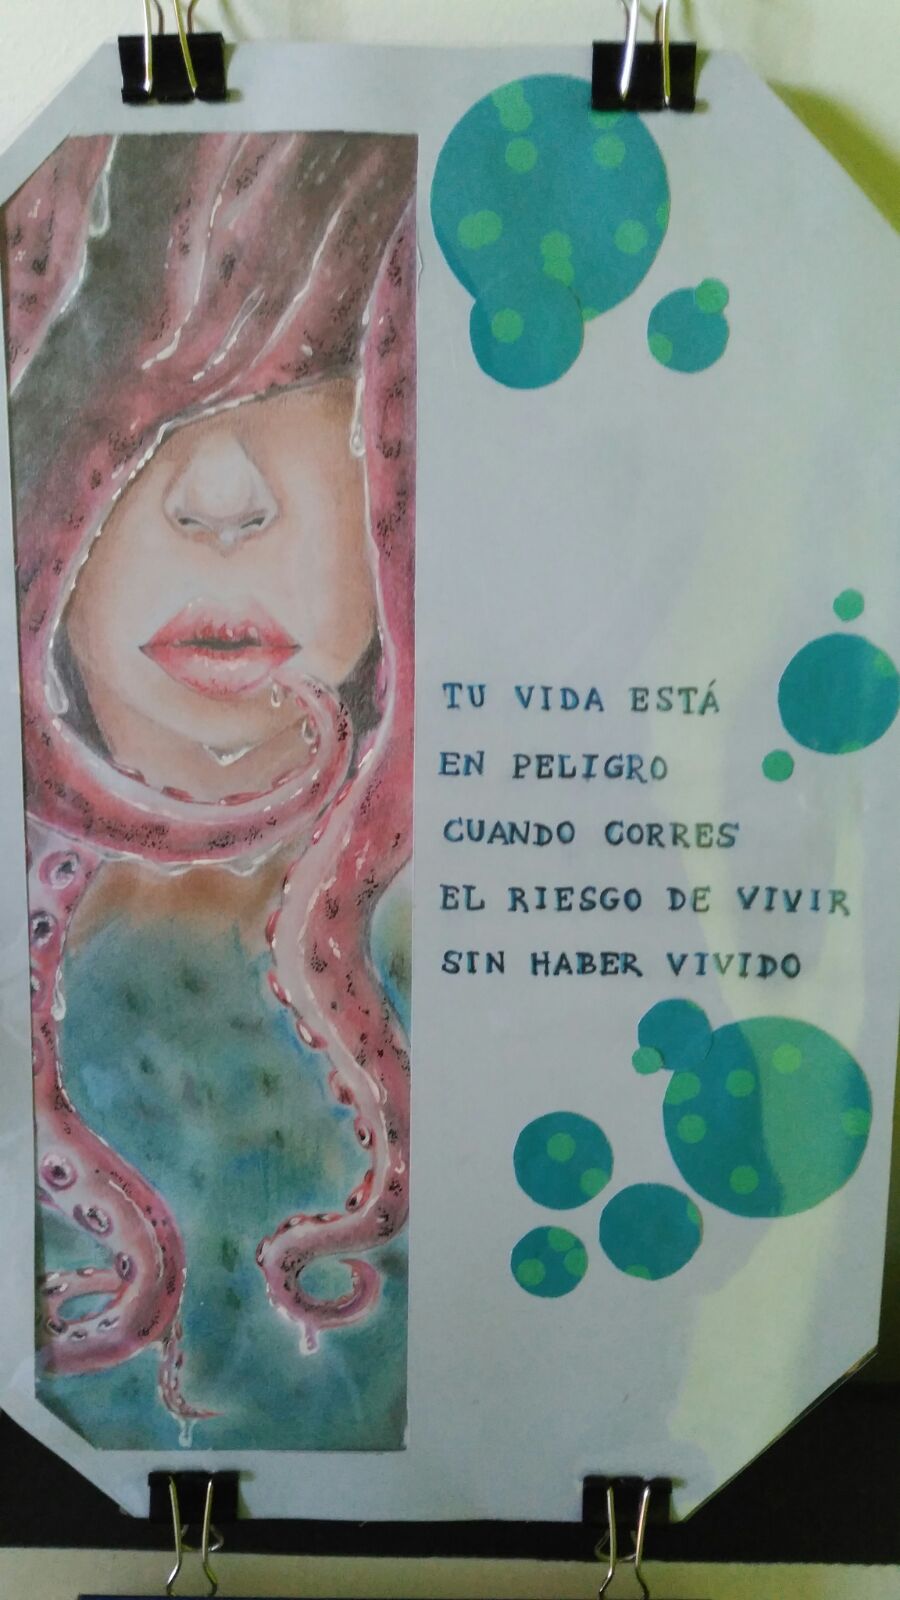 TU VIDA ESTÁ
EN PELIGRO
CUANDO CORRES
EL RIESGO DE VIVIR
SIN HABER VIVIDO